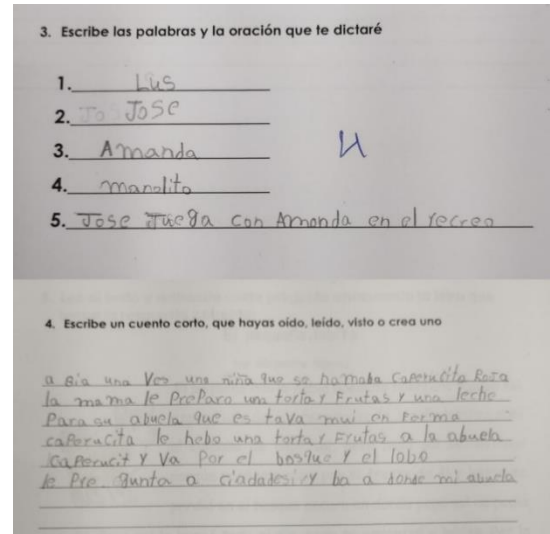 3. Escribe las palabras y la oración que te dictaré
1. Lus
2. Jose
3. Amanda
4. manolito
5. Jose Juega con Amonda en el recreo
4. Escribe un cuento corto, que hayas oído, leído, visto o crea uno
a Bia una Ves una niña que se hamaba caperusita Roja
la mama le PreParo una torta y Frutas y una leche
Para su abuela que es tava mui en Ferma
caPerucita le hebo una torta y Frutas a la abuela
CaPerucit y Va Por el bosque y el lobo
le Pre gunta a y ba a donde mi abuela